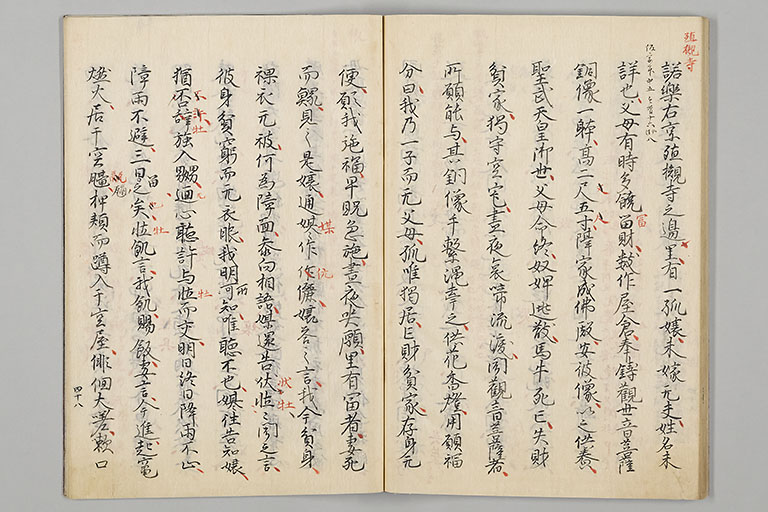 殖槻寺
諾樂右京殖槻寺之邊里有一孤孃未嫁无夫姓名未
詳也父母有時多饒畄財數作屋倉奉鑄觀世音菩薩
冨
銅像一軀高二尺五寸隔家成佛殿安彼像以之供養
聖武天皇御世父母命終奴婢逃散馬牛死亡失財
貧家獨守空宅晝夜哀啼流淚聞觀音菩薩者
所願能与其銅像手繫繩牽之供花香燈用願福
分曰我乃一子而无父母孤唯獨居亡財貧家存身无
便願我施福早貺急施晝夜哭願里有冨者妻死
而鰥見之是孃通媒作作儷孃答之言我今貧身
媒 伉
裸衣无被何爲障面參向相語媒還告伏壯之聞之言
狀 壯
彼身貧窮而无衣服我明可知唯聽不也媒往告知孃
所
猶否辭強入嬲逼心聽許与壯而交明日終日降雨不止
壯
障雨不避三日之矣壯飢言我飢賜飯妻言今進起竈
留 壯
燃火居于空 押頰而蹲入于空屋俳佪大嗟歎口
四十八